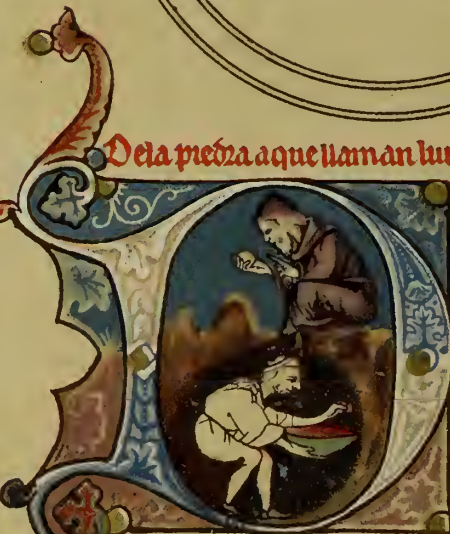 Dela piedra aque llaman
D